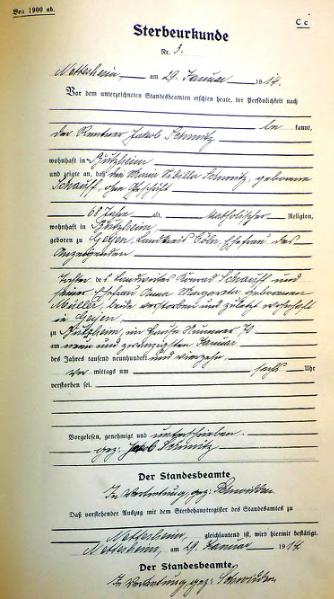 Von 1900 ab.
C c
Sterbeurkunde
Nr. 3.
Nettesheim, am 29. Januar 1914.
Vor dem unterzeichneten Standesbeamten erschien heute, der Persönlichkeit nach
be kannt,
der Rentner Jakob Schmitz
wohnhaft in Bützheim
und zeigte an, daß die Maria Sibilla Schmitz geborene
Schauff, ohne Geschäft
68 Jahre alt, katholischer Religion,
wohnhaft in Bützheim
geboren zu Geyen, Landkreis Cöln, Ehefrau des
Anzeigenden
Tochter des Landwirtes Konrad Schauff und
seiner Ehefrau Anna Margareta geborenen
Müller, beide verstorben und zuletzt wohnhaft
in Geyen
zu Bützheim, im Hause Nummer
am neun und zwanzigsten Januar
des Jahres tausend neunhundert und vierzehn,
vor mittags um sechs Uhr
verstorben sei.
Vorgelesen, genehmigt und unterschrieben.
gez: Jakob Schmitz
Der Standesbeamte
In Vertretung gez:
Daß vorstehender Auszug mit dem Sterbehauptregister des Standesamtes zu
Nettesheim, gleichlautend ist, wird hiermit bestätigt.
Nettesheim, am 29. Januar 1914.
Der Standesbeamte
In Vertretung gez: